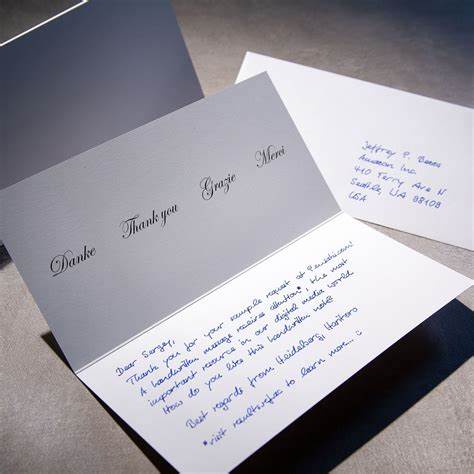 Danke
Thank you
Grazie
Merci
Dear Sergey,
Thank you for your sample request at
A handwritten message receives attention*, the most
important resource in our digital media world
How do you like this handwritten note?
Best regards from Heidelberg
*visit to learn more... :
Jeffrey P. Bezos
Amazon Inc.
410 Terry Ave N
Seattle, WA 98109
USA